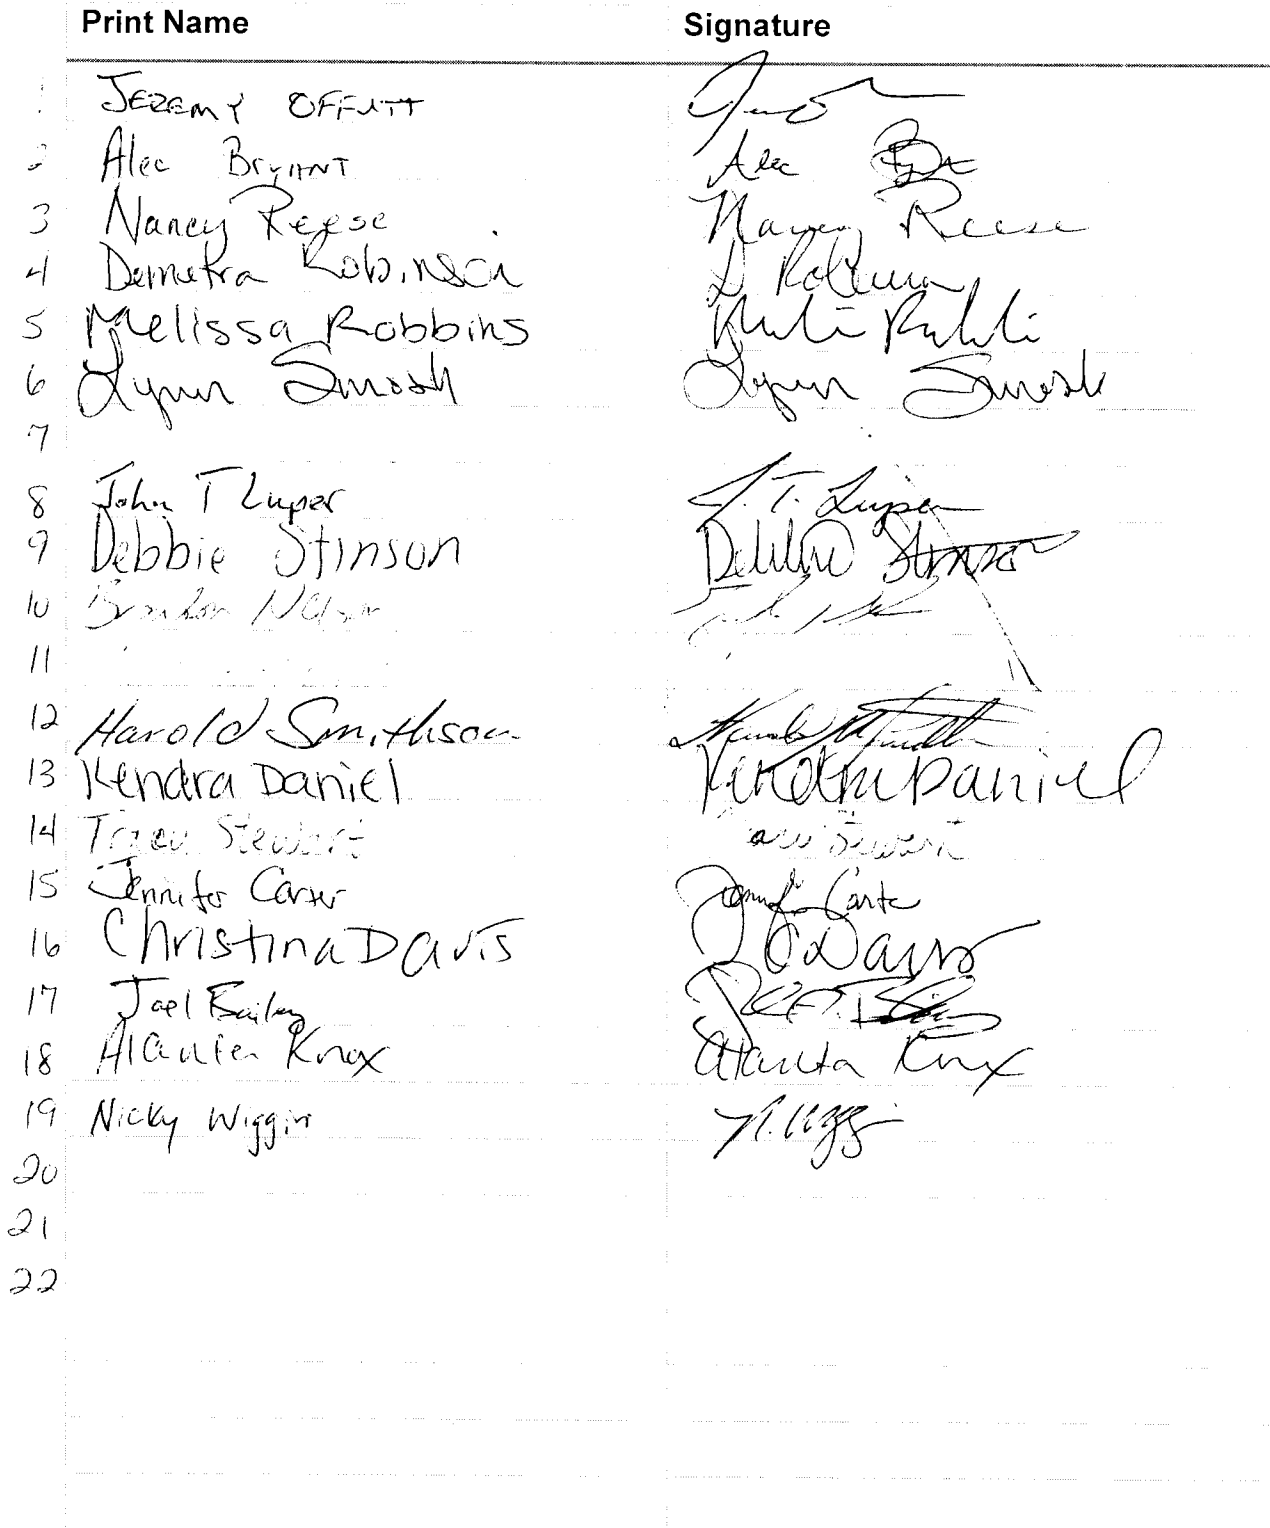 Print Name Signature
1 JEREMY OFFUTT
2 Alec BryANT Alec
3 Nancy Reese Nancy Reese
4 Demetra Robinson D Robinson
5 Melissa Robbins
6 Lynn Smosh Lynn Smosh
7
8 John T Luper J. T. Luper
9 Debbie Stinson Debbie Stinson
10 Brandon Nelson
11
12 Harold Smithson
13 Kendra Daniel Kendra Daniel
14 Tracy Stewart Stewart
15 Jennifer Carter Jennifer Carter
16 Christina Davis C Davis
17 Joel Bailey
18 Knox Knox
19 Nicky Wiggin N. Wigg
20
21
22